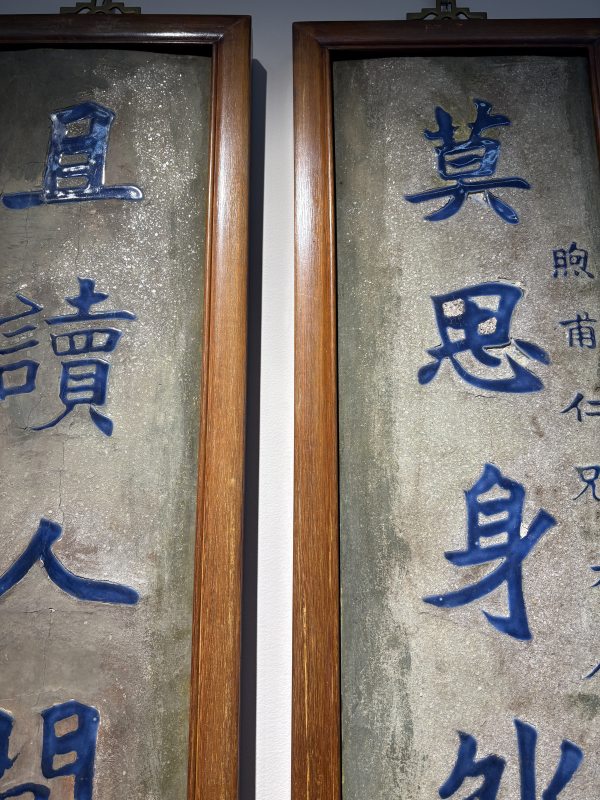 煦甫仁兄大人
莫思身外
且讀人間